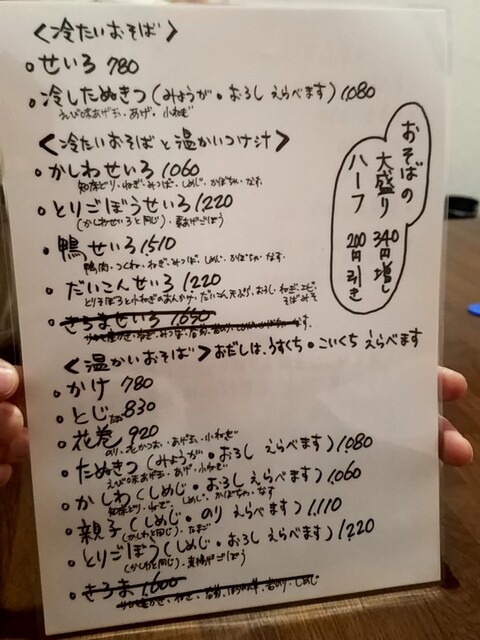 <冷たいおそば>
・せいろ 780
・冷したぬきつ(みょうが・おろし えらべます)1,080
えび味あげ玉・あげ・小ねぎ
<冷たいおそばと温かいつけ汁>
・かしわせいろ 1,060
知床どり・ねぎ・みつば・しめじ・かぼちゃ・なす
・とりごぼうせいろ 1,220
(かしわせいろと同じ)・素あげごぼう
・鴨せいろ 1,510
鴨肉・つくね・ねぎ・みつば・しめじ・かぼちゃ・なす
・だいこんせいろ 1,220
とりそぼろと小ねぎのあんかけ・だいこん天ぷら・おろし・ねぎ・エビ・
そばみそ
おそばの
大盛り 340円増し
ハーフ 200円引き
<温かいおそば>おだしは、うすくち・こいくち えらべます
・かけ 780
・とじ 830
・花巻 920
のり・花かつお・あげ玉・小ねぎ
・たぬきつ(みょうが・おろし えらべます)1,080
えび味あげ玉・あげ・小ねぎ
・かしわ(しめじ・おろし えらべます)1,060
知床どり・ねぎ・しめじ・かぼちゃ・なす
・親子(しめじ・のり えらべます)1,110
(かしわと同じ)・たまご
・とりごぼう(しめじ・おろし えらべます)1,220
(かしわと同じ)・素揚げごぼう